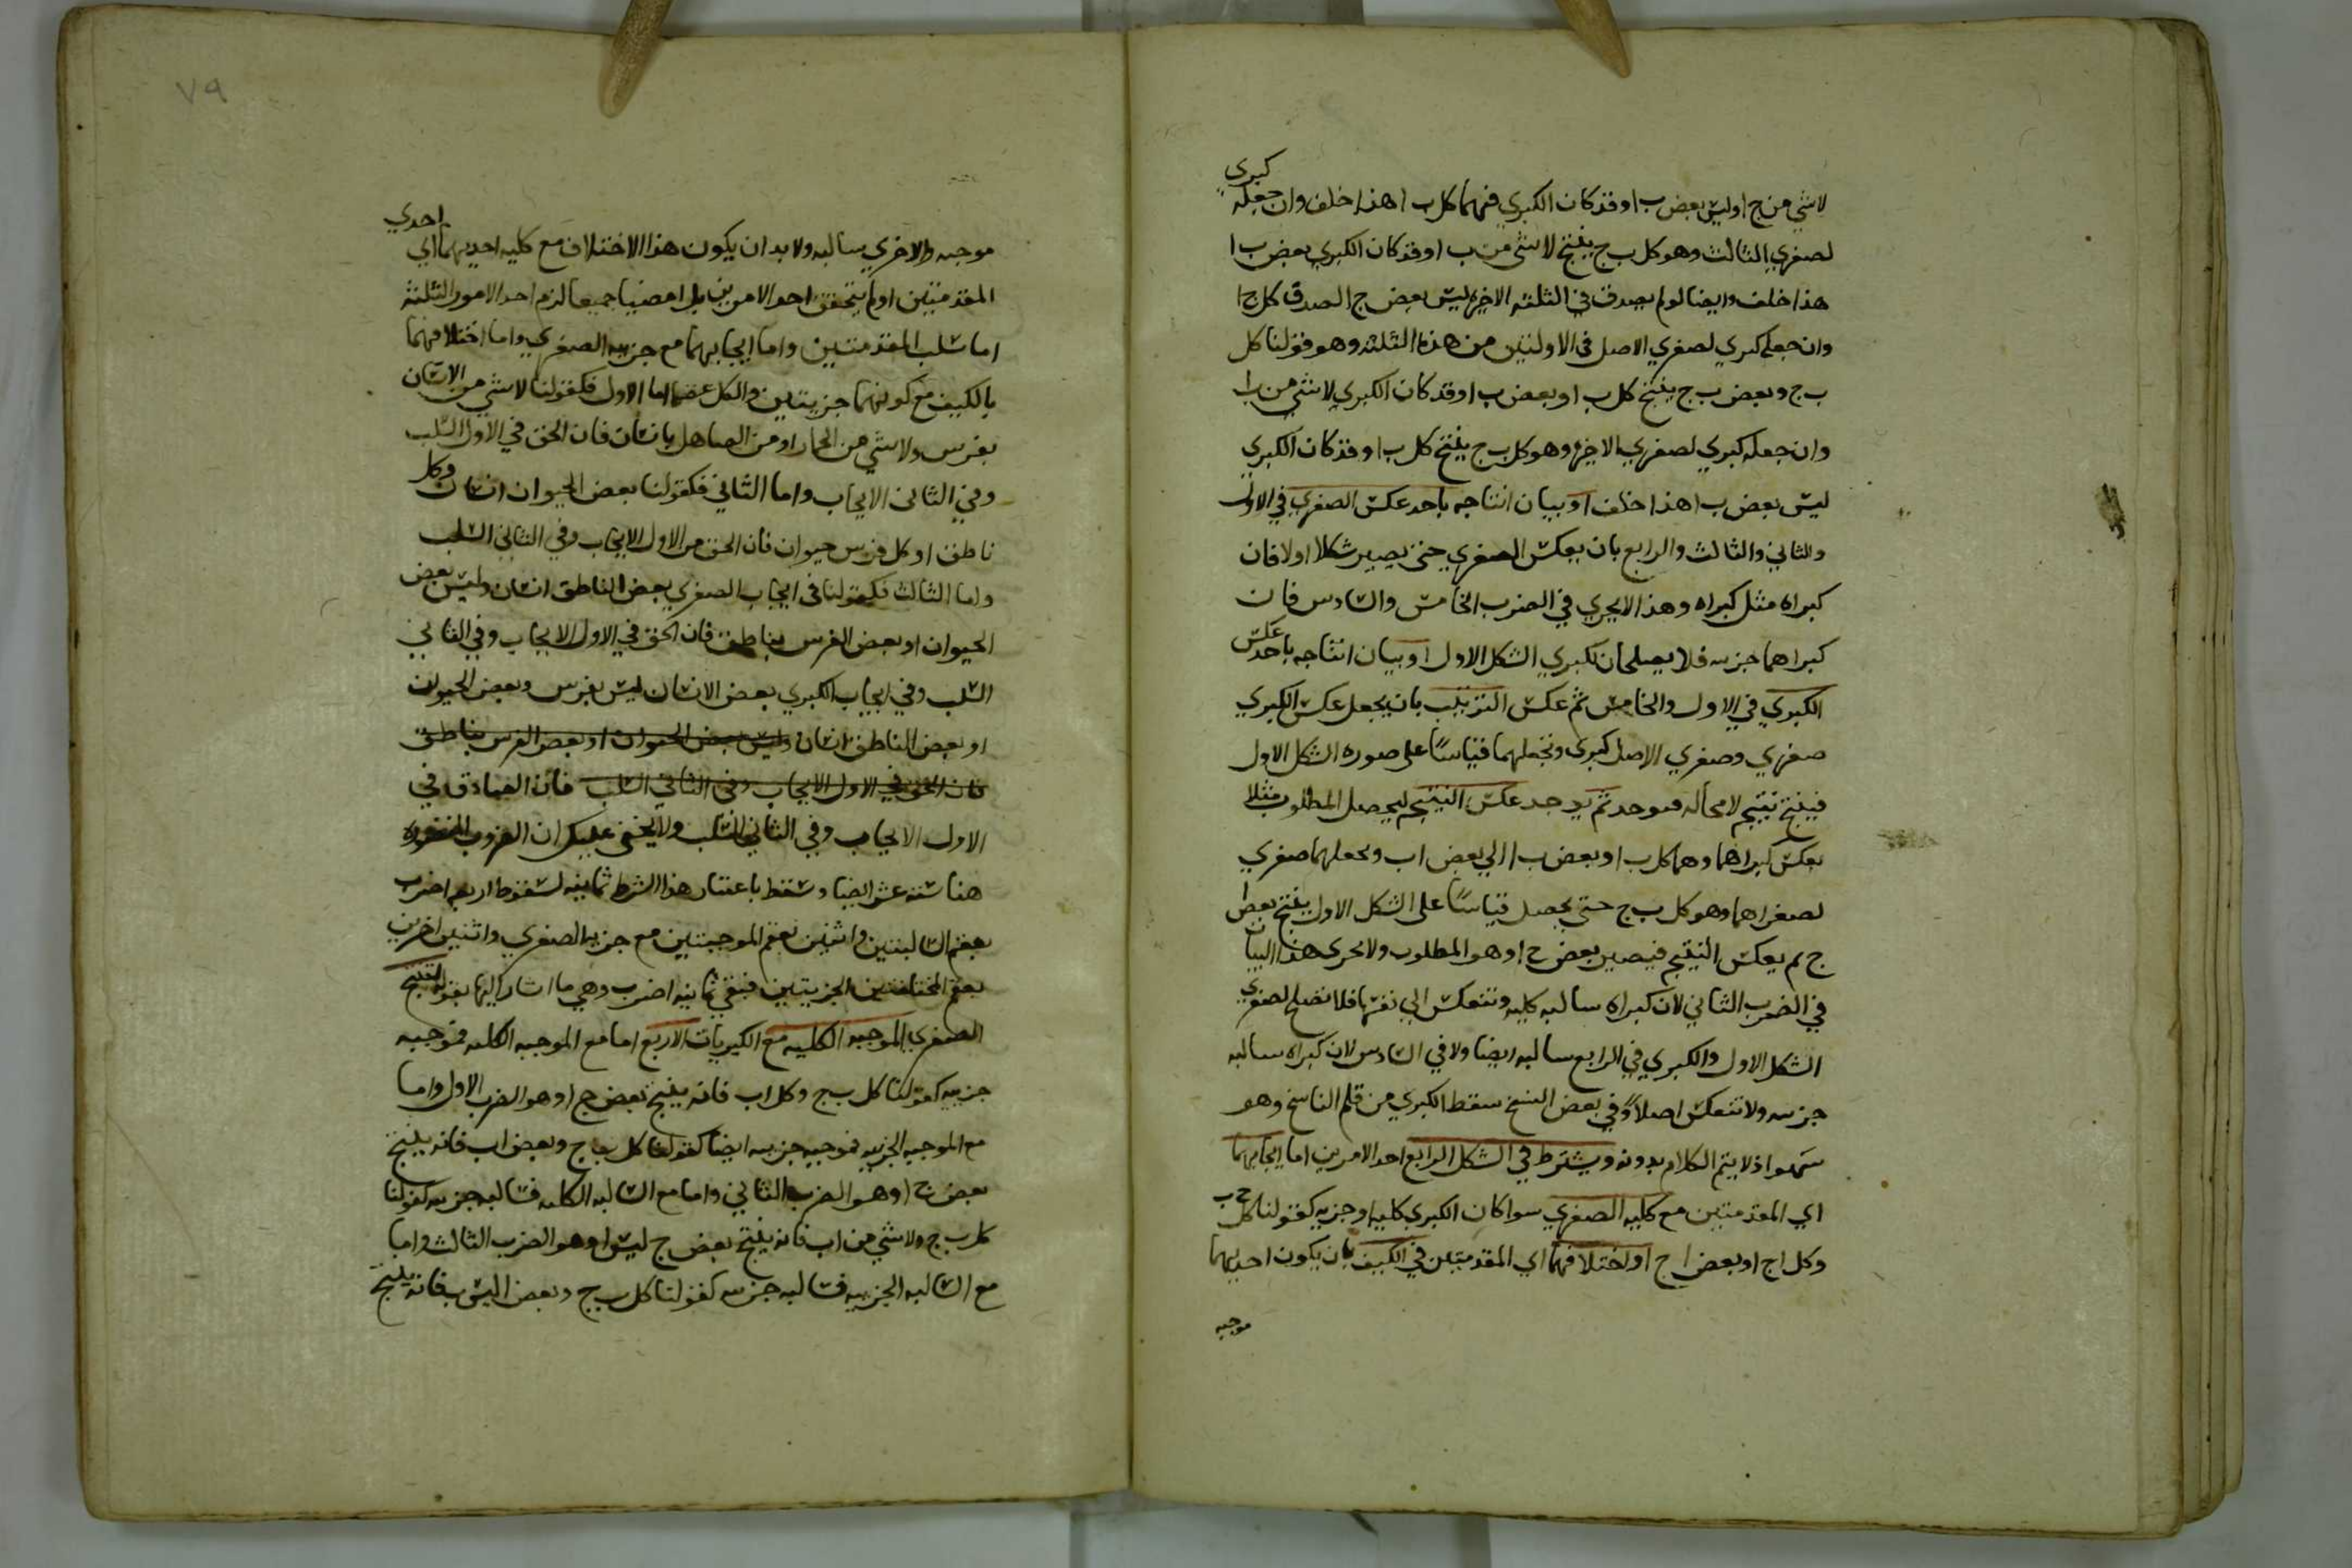 لاشي من ج ا وليس بعض ب ا وقد كان الكبري فيهما كل ب ا هذا خلف وان جعله كبرى
لصغري الثالث وهو كل ب ج ينتج لاشي من ب ا وقد كان الكبري بعض ب ا
هذا خلف وايضا لو لم يصدق في الثلثه الاخيره ليس بعض ج ا لصدق كل ج ا
وان جعله كبري لصغري الاصل في الاولتين من هذه الثلثه وهو قولنا كل
ب ج وبعض ب ج ينتج كل ب ا وبعض ب ا وقد كان الكبري لا شي من ب ا
وان جعله كبري لصغري الاخيره وهو كل ب ج ينتج كل ب ا وقد كان الكبري
ليس بعض ب ا هذا خلف او بيان انتاجه باحد عكس الصغري في الاول
والثاني والثالث والرابع بان يعكس الصغري حتى يصير شكلا اولا فان
كبراه مثل كبراه وهذا لا يجري في الضرب الخامس والسادس فان
كبراهما جزييه فلا يصلحان لكبري الشكل الاول او بيان انتاجه باحد عكس
الكبري في الاول والخامس ثم عكس الترتيب بان يجعل عكس الكبري
صغري وصغري الاصل كبرى ونجعلهما قياسًا على صوره الشكل الاول
فينتج نتيجه لا محاله فوحد ثم يوجد عكس النتيجه ليحصل المطلوب مثلا
يعكس كبراهما وهما كل ب ا وبعض ب ا الي بعض ا ب ونجعلهما صغري
لصغراهما وهو كل ب ج حتي يحصل قياسًا على الشكل الاول ينتج بعض ا
ج ثم يعكس النتيجه فيصير بعض ج ا وهو المطلوب ولا يجري هذا البيان
في الضرب الثاني لان كبراه سالبه كليه وتنعكس الي نفسها فلا تصلح لصغري
الشكل الاول والكبري في الرابع سالبه ايضا ولا في السادس لان كبراه سالبه
جزييه ولا تنعكس اصلاً وفي بعض النسخ سقط الكبري من قلم الناسخ وهو
سهوا اذ لا يتم الكلام بدونه ويشترط في الشكل الرابع احد الامرين اما ايجابهما
اي المقدمتين مع كليه الصغري سوا كان الكبري كليه او جزييه كقولنا كل ج ب
وكل ا ج او بعض ا ج او اختلافهما اي المقدمتين في الكيف بان يكون احديهما
موجبه
٧٩
موجبه والاخري سالبه ولا بد ان يكون هذا الاختلاف مع كليه احديهما اي احدي
المقدمتين او لم يتحقق احد الامرين بل امضيا جميعا لزم احد الامور الثلثة
اما سلب المقدمتين واما ايجابهما مع جزييه الصغري واما اختلافهما
بالكيف مع كونهما جزيتين والكل عقيم اما الاول فكقولنا لا شي من الانسان
بفرس ولا شي من الحمار او من الصاهل بانسان فان الحق في الاول السلب
وفي الثاني الايجاب واما الثاني فكقولنا بعض الحيوان انسان وكل
ناطق او كل فرس حيوان فان الحق من الاول الايجاب وفي الثاني السلب
واما الثالث فكقولنا في ايجاب الصغري بعض الناطق انسان وليس بعض
الحيوان او بعض الفرس بناطق فان الحق في الاول الايجاب وفي الثاني
السلب وفي ايجاب الكبري بعض الانسان ليس بفرس وبعض الحيوان
او بعض الناطق انسان وليس بعض الحيوان او بعض الفرس بناطق
فان الحق في الاول الايجاب وفي الثاني السلب فان الصادق في
الاول الايجاب وفي الثاني السلب ولا يخفى عليك ان الضروب المتصوره
هنا سته عشر ايضا وسقط باعتبار هذا الشرط ثمانيه لسقوط اربعه اضرب
بعقم السالبتين واثنين بعقم الموجبتين مع جزييه الصغري واثنين اخرين
بعقم المختلفتين الجزيتين فبقي ثمانيه اضرب وهي ما اشار اليها بقوله لينتج
الصغري الموجبه الكليه مع الكبريات الاربع اما مع الموجبه الكليه فموجبه
جزييه كقولنا كل ب ج وكل ا ب فانه ينتج بعض ج ا وهو الضرب الاول واما
مع الموجبه الجزييه فموجبه جزييه ايضا كقولنا كل ب ج وبعض ا ب فانه ينتج
بعض ج ا وهو الضرب الثاني واما مع السالبه الكليه فسالبه جزييه كقولنا
كل ب ج ولا شي من ا ب فانه ينتج بعض ج ليس ا وهو الضرب الثالث واما
مع السالبه الجزييه فسالبه جزييه كقولنا كل ب ج وبعض ا ليس ب فانه ينتج